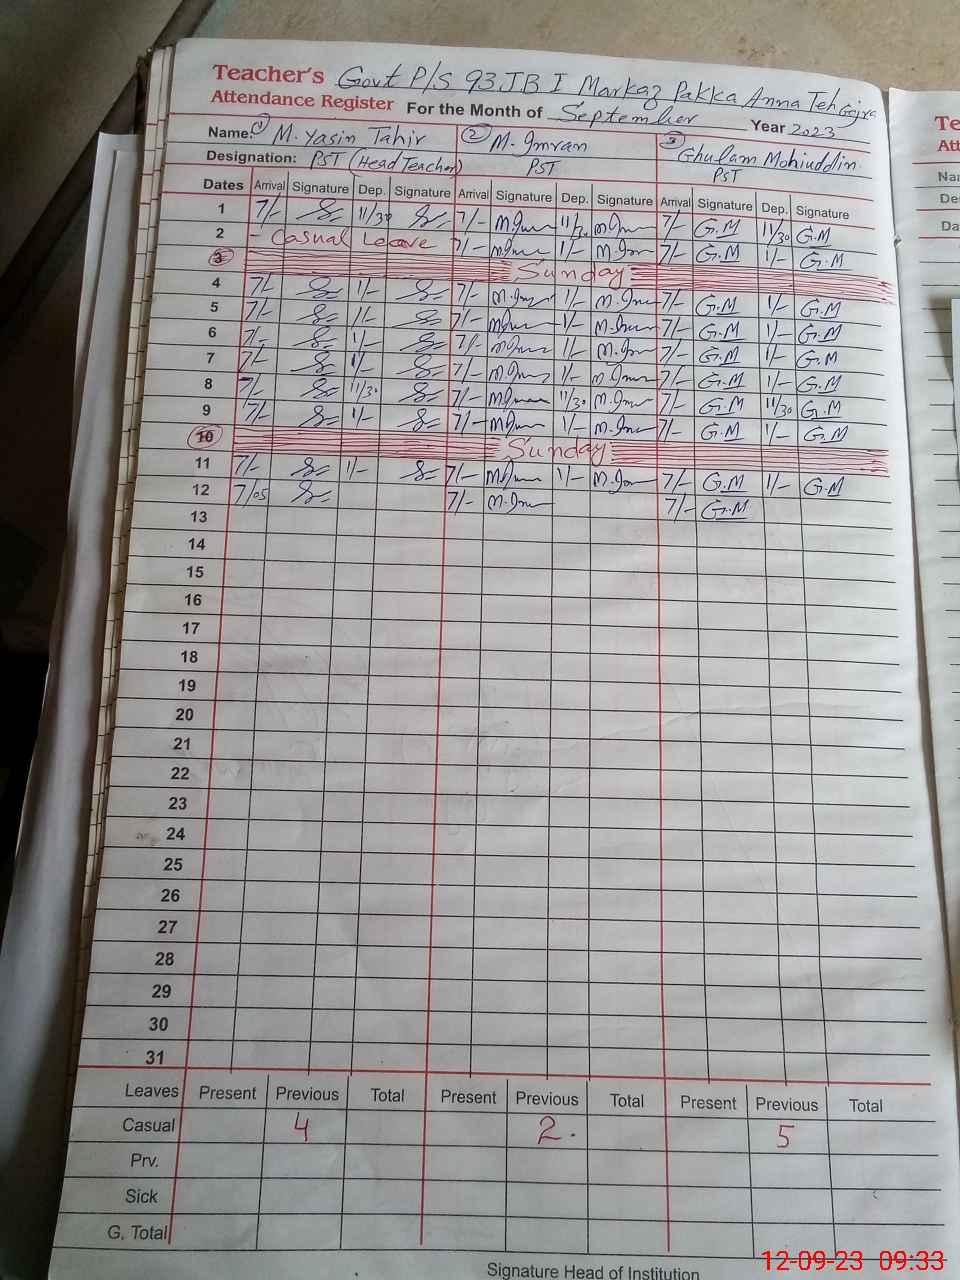 Teacher's Govt P/S 93 JB I Markaz Pakka Anna Teh Gojra
Attendance Register For the Month of September Year 2023
Name: ① M. Yasin Tahir ② M. Imran ③ Ghulam Mohiuddin
Designation: PST (Head Teacher) PST PST
Dates Arrival Signature Dep. Signature Arrival Signature Dep. Signature Arrival Signature Dep. Signature
1 7/- 11/30 7/- M.Imran 11/30 M.Imran 7/- G.M 11/30 G.M
2 - Casual Leave 7/- M.Imran 1/- M.Imran 7/- G.M 1/- G.M
3 Sunday
4 7/- 1/- 7/- M.Imran 1/- M.Imran 7/- G.M 1/- G.M
5 7/- 1/- 7/- M.Imran 1/- M.Imran 7/- G.M 1/- G.M
6 7/- 1/- 7/- M.Imran 1/- M.Imran 7/- G.M 1/- G.M
7 7/- 1/- 7/- M.Imran 1/- M.Imran 7/- G.M 1/- G.M
8 7/- 11/30 7/- M.Imran 11/30 M.Imran 7/- G.M 11/30 G.M
9 7/- 1/- 7/- M.Imran 1/- M.Imran 7/- G.M 1/- G.M
10 Sunday
11 7/- 1/- 7/- M.Imran 1/- M.Imran 7/- G.M 1/- G.M
12 7/05 7/- M.Imran 7/- G.M
13
14
15
16
17
18
19
20
21
22
23
24
25
26
27
28
29
30
31
Leaves Present Previous Total Present Previous Total Present Previous Total
Casual 4 2. 5
Prv.
Sick
G. Total
Signature Head of Institution
12-09-23 09:33